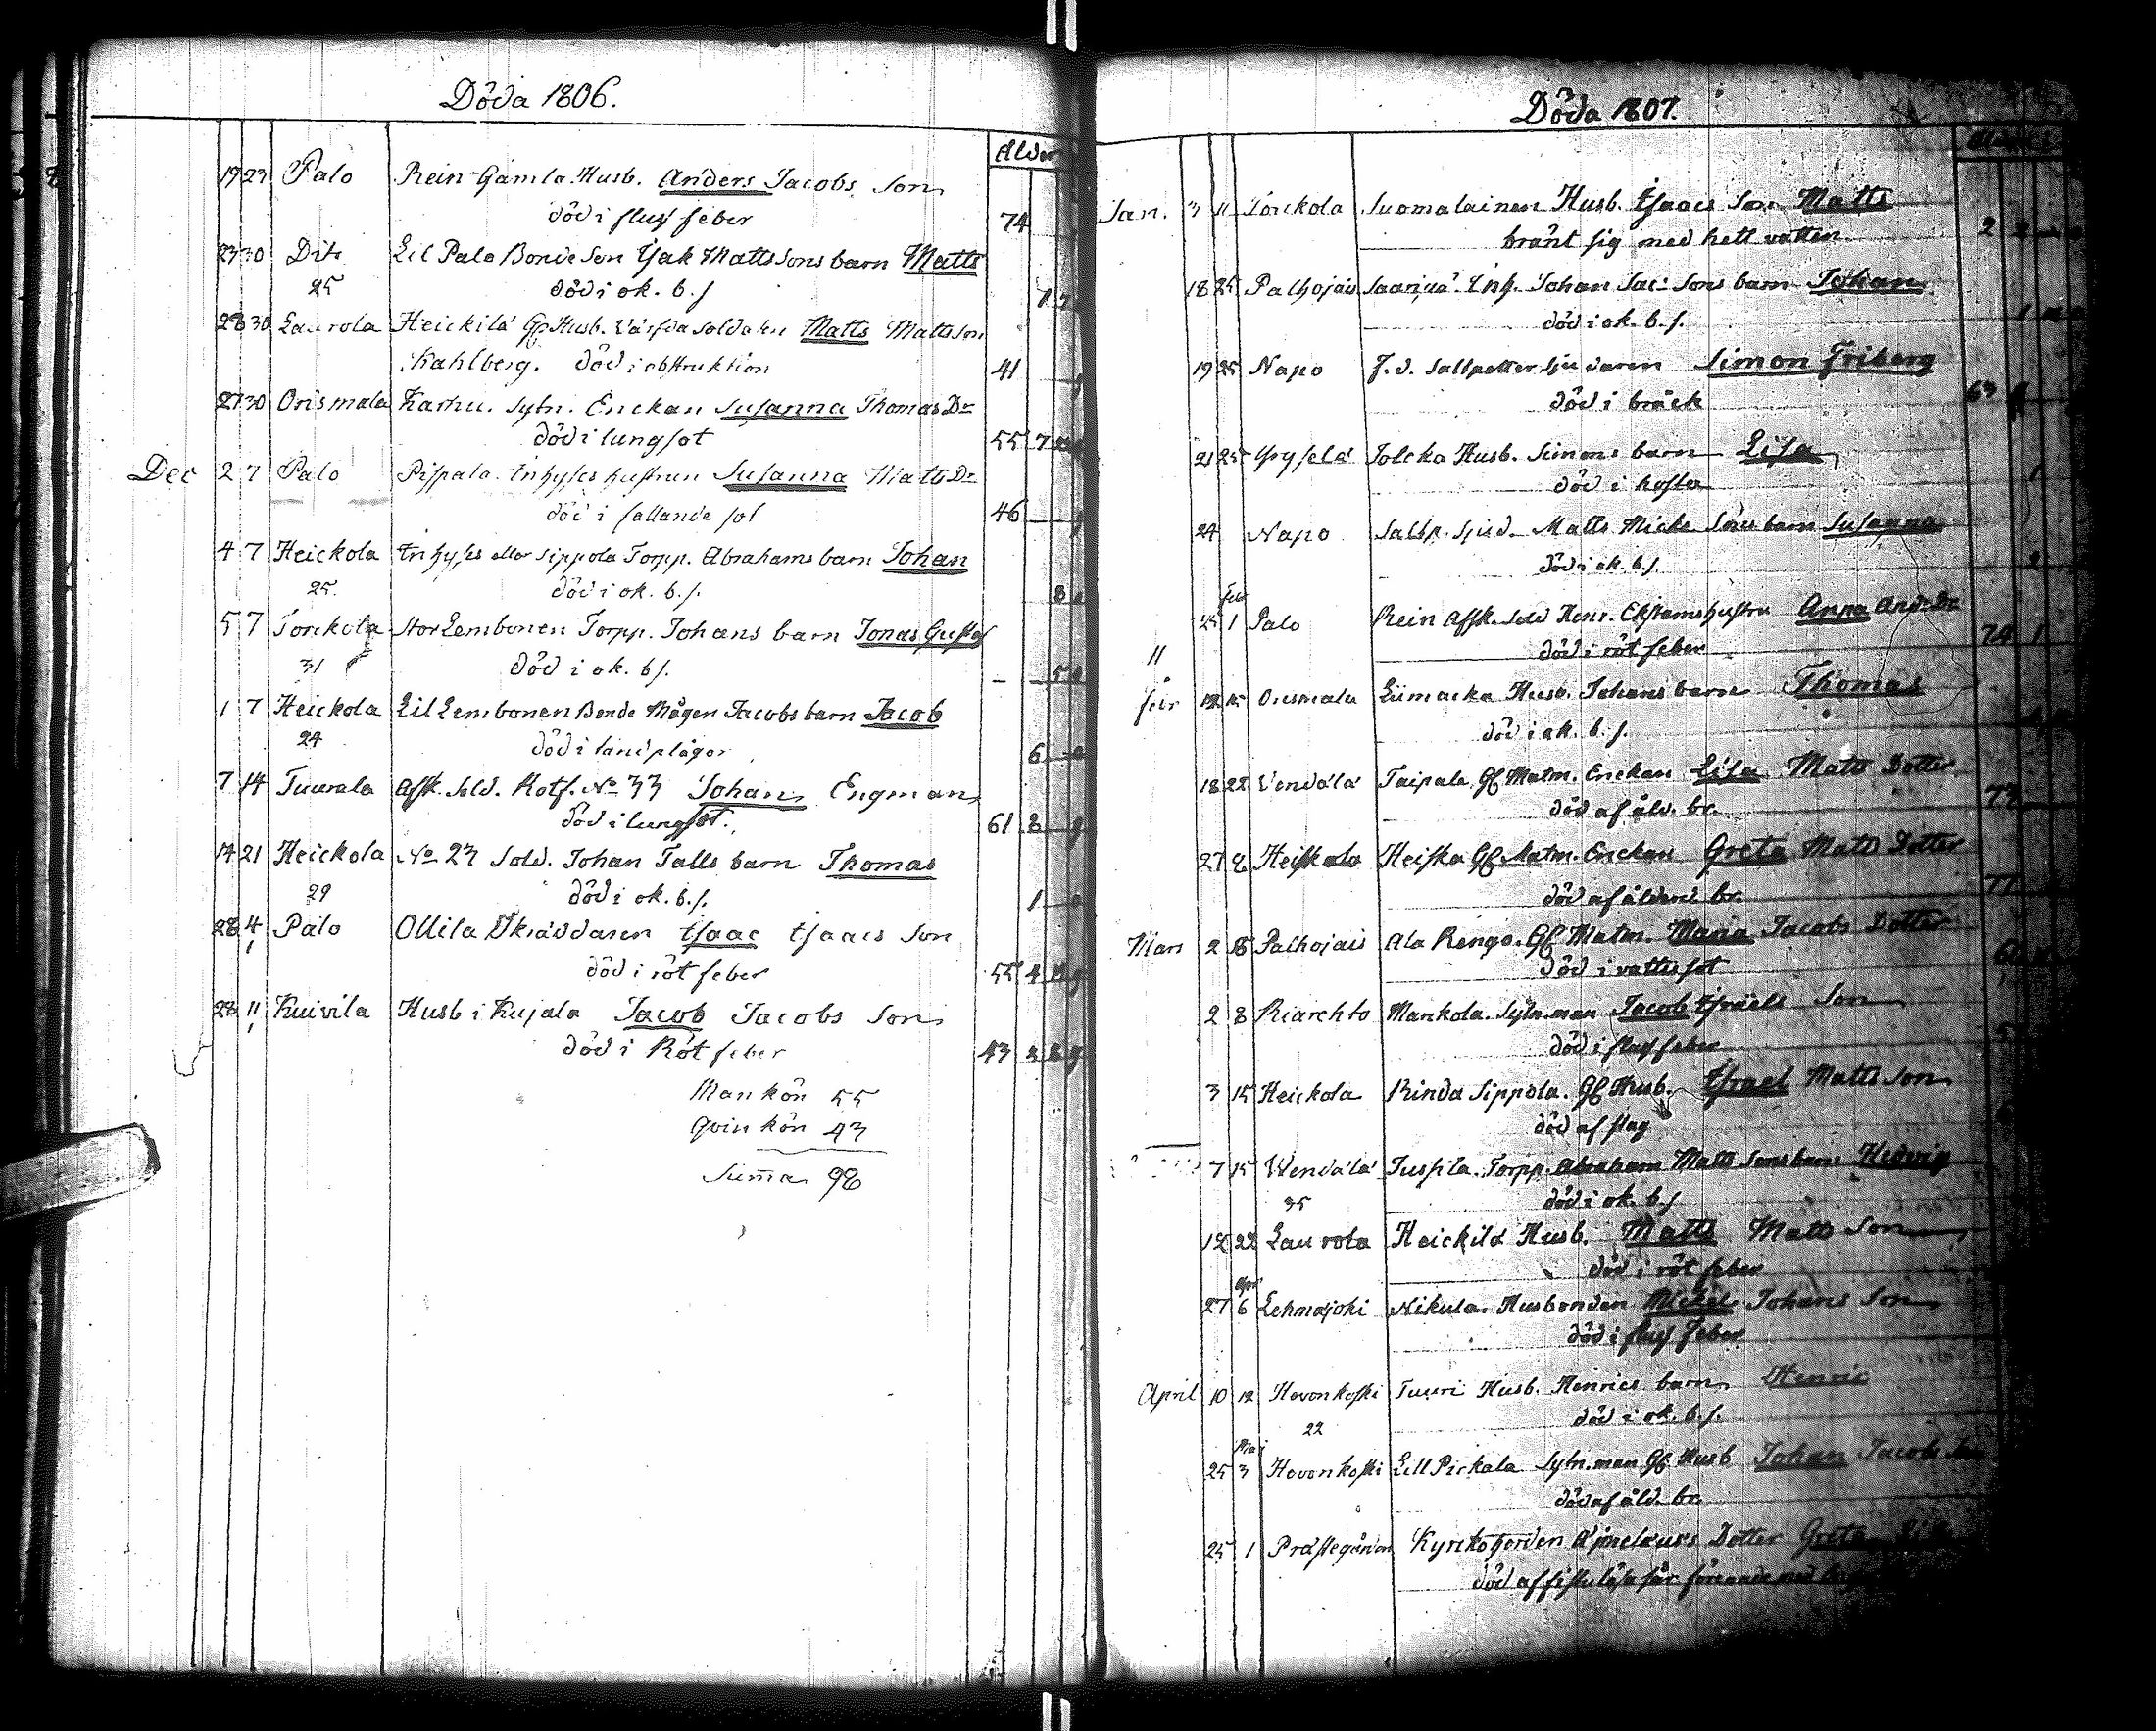 Döda 1806.
Alder
19 23 Palo Rein-Gamla Husb. Anders Jacobs Son
död i fluss feber 74
23 30 Dito Lil Palo Bonde Son Isak Mattssons barn Matts
25 död i ok. b. s
28 30 Laurola Heickilä Gl Husb. Värfda soldaten Matts Mattsson
Kahlberg. död i obstruktion 41
27 30 Orismala Karhu. Sytn. Enckan Susanna Thomas Dr
död i lungsot 55 7
Dec 2 7 Palo Pispala Inhyses hustrun Susanna Matts Dr
död i fallande sot 46
4 7 Heickola Inhyses eller Sippola Torpp. Abrahams barn Johan
25 död i ok. b. s. 8
5 7 Torckola Stor Lembonen Torpp. Johans barn Jonas Gustaf
31 död i ok. b s.
1 7 Heickola Lil Lembonen Bonde Mågen Jacobs barn Jacob
24 död i landplågor 6
7 14 Tuurala Afsk. Sold. Rotf. No 33 Johan Engman
död i lungsot. 61 8
14 21 Heickola No 27 Sold. Johan Talls barn Thomas
29 död i ok. b. s. 1
28 4 Palo Ollila Skräddaren Isaac Isaacs Son
död i röt feber 55
28 11 Kuivila Husb i Kujala Jacob Jacobs Son
död i Röt feber 43
Mankön 55
Qvinkön 43
Summa 98
Döda 1807.
Jan. 3 11 Torckola Suomalainen Husb. Isaacs Son Matts
bränt sig med hett vatten 2
18 25 Palhojais Johan Jac. Sons barn Johan
död i ok. b. s. 1
19 25 Napo F. d. Saltpetter sjudaren Simon Friberg
död i bräck 63
21 25 Tolcka Husb. Simons barn Lisa
död i hosta 1
24 Napo Saltp. sjud. Matts Micks Sons barn Susanna
död i ok. b. s. 2
feb
25 1 Palo Rein Afsk. Sold Henr. Ekstams hustru Anna And. Dr
död i röt feber 74 1
11
febr 12 15 Orismala Liimacka Husb. Johans barn Thomas
död i ok. b. s.
18 22 Vendälä Taipala Gl Matm. Enckan Lisa Matts Dotter
död af åld. br. 77
27 8 Heiskala Heiska Gl Matm. Enckan Greta Matts Dotter
död af ålderd. br. 77
Mars 2 15 Palhojais Ala Rengo. Gl Matm. Maria Jacobs Dotter
död i vattusot
2 8 Riarehto Mankola. Sytn.man Jacob Israels Son
död i fluss feber
3 15 Heickola Rinda Sippola. Gl Husb. Israel Matts son
död af slag
7 15 Wendälä Jussila Torpp. Abraham Matts Sons barn Hedvig
35 död i ok. b. s
12 22 Laurola Heickilä Husb. Matts Matts Son
död i röt feber
Apr
27 6 Lehmäjoki Nikula Husbonden Mickel Johans Son
död i fluss feber
April 10 12 Hovonkoski Tuuri Husb. Henrics barn Henric
22 död i ok. b. s.
Maj
25 3 Hovonkoski Lill Pickala Sytn.man Gl Husb Johan Jacobs Son
död af åld. br.
25 1 Prästegården Kyrckoherden Dotter Greta
död af